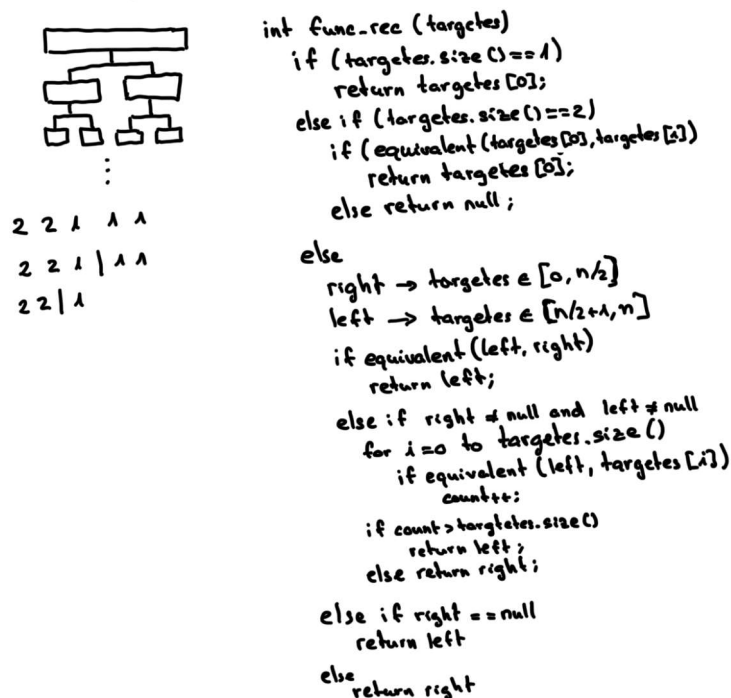 int func_rec (targetes)
if (targetes.size()==1)
return targetes [0];
else if (targetes.size()==2)
if (equivalent (targetes [0], targetes [1])
return targetes [0];
else return null;
else
right → targetes ∈ [0, n/2]
left → targetes ∈ [n/2+1, n]
if equivalent (left, right)
return left;
else if right ≠ null and left ≠ null
for i=0 to targetes.size()
if equivalent (left, targetes [i])
count++;
if count > targtetes.size()
return left;
else return right;
else if right == null
return left
else
return right
2 2 1 1 1
2 2 1 | 1 1
2 2 | 1